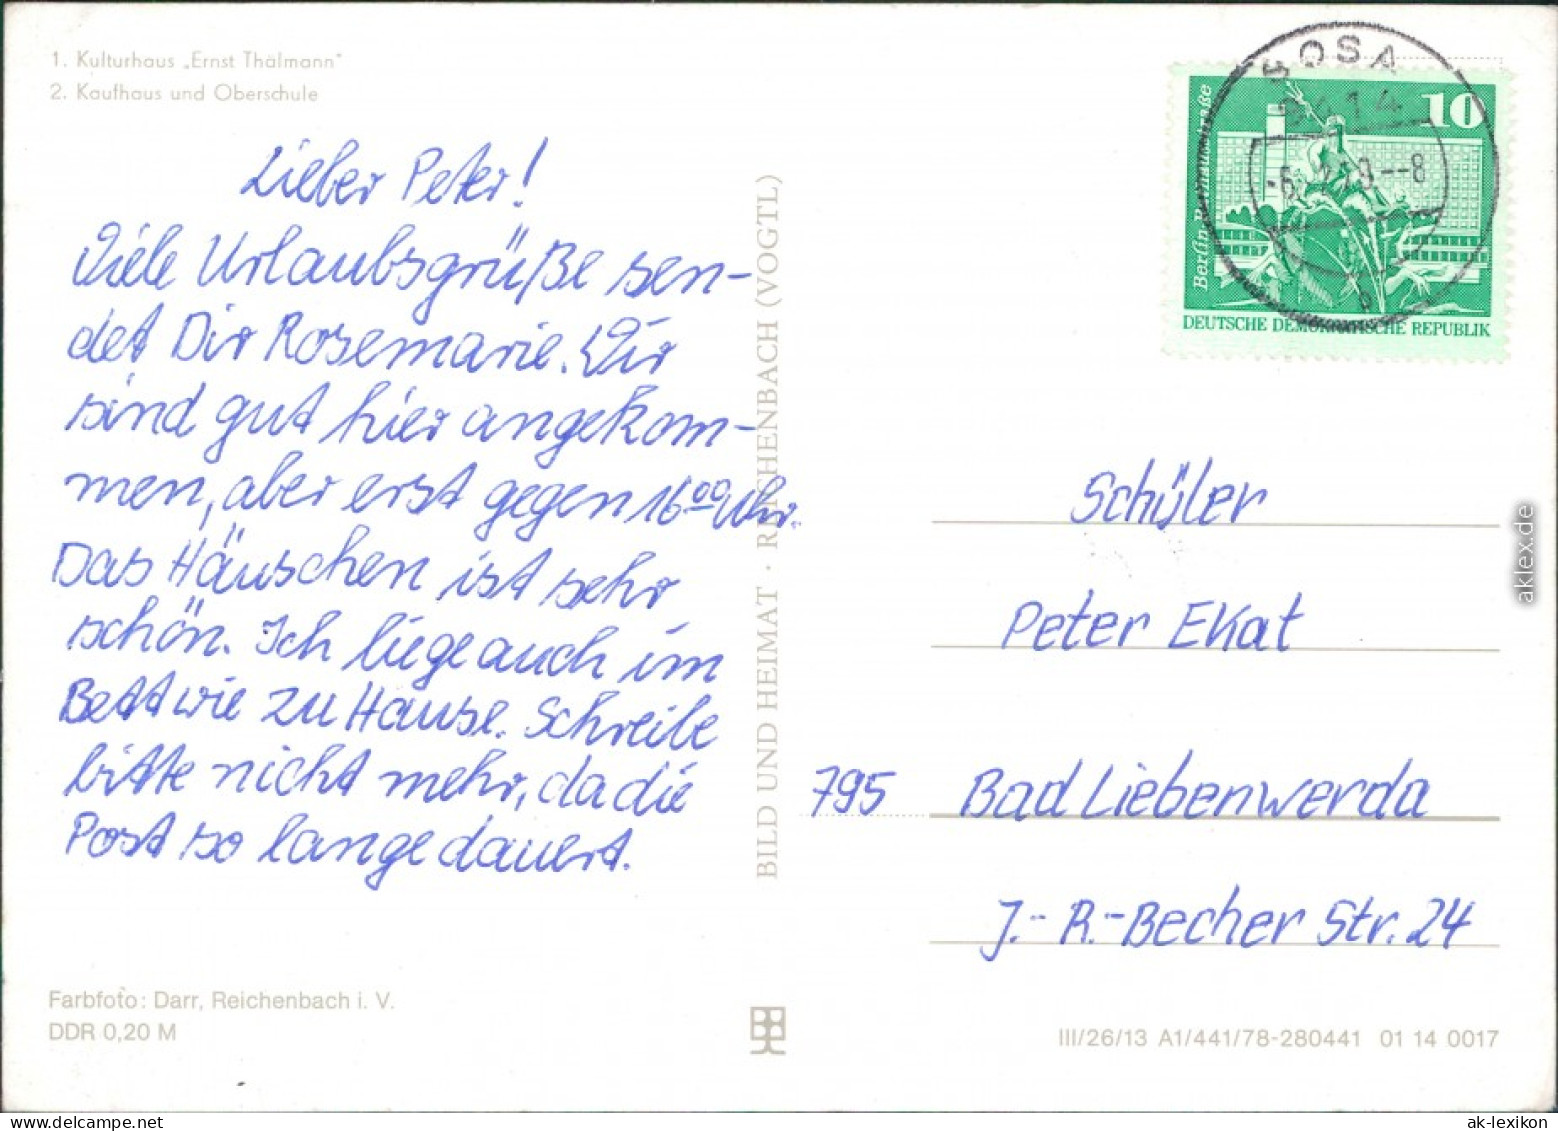 1. Kulturhaus „Ernst Thälmann"
2. Kaufhaus und Oberschule
Lieber Peter!
Viele Urlaubsgrüße sen-
det Dir Rosemarie. Wir
sind gut hier angekom-
men, aber erst gegen 16⁰⁰ Uhr.
Das Häuschen ist sehr
schön. Ich liege auch im
Bett wie zu Hause. Schreibe
bitte nicht mehr, da die
Post so lange dauert.
Farbfoto: Darr, Reichenbach i. V.
DDR 0,20 M
BILD UND HEIMAT · REICHENBACH (VOGTL)
SOSA
9414
Berlin-Rathausstraße
10
DEUTSCHE DEMOKRATISCHE REPUBLIK
Schüler
Peter Ekat
795 Bad Liebenwerda
J.-R.-Becher Str. 24
III/26/13 A1/441/78-280441 01 14 0017
aklex.de
ak-lexikon